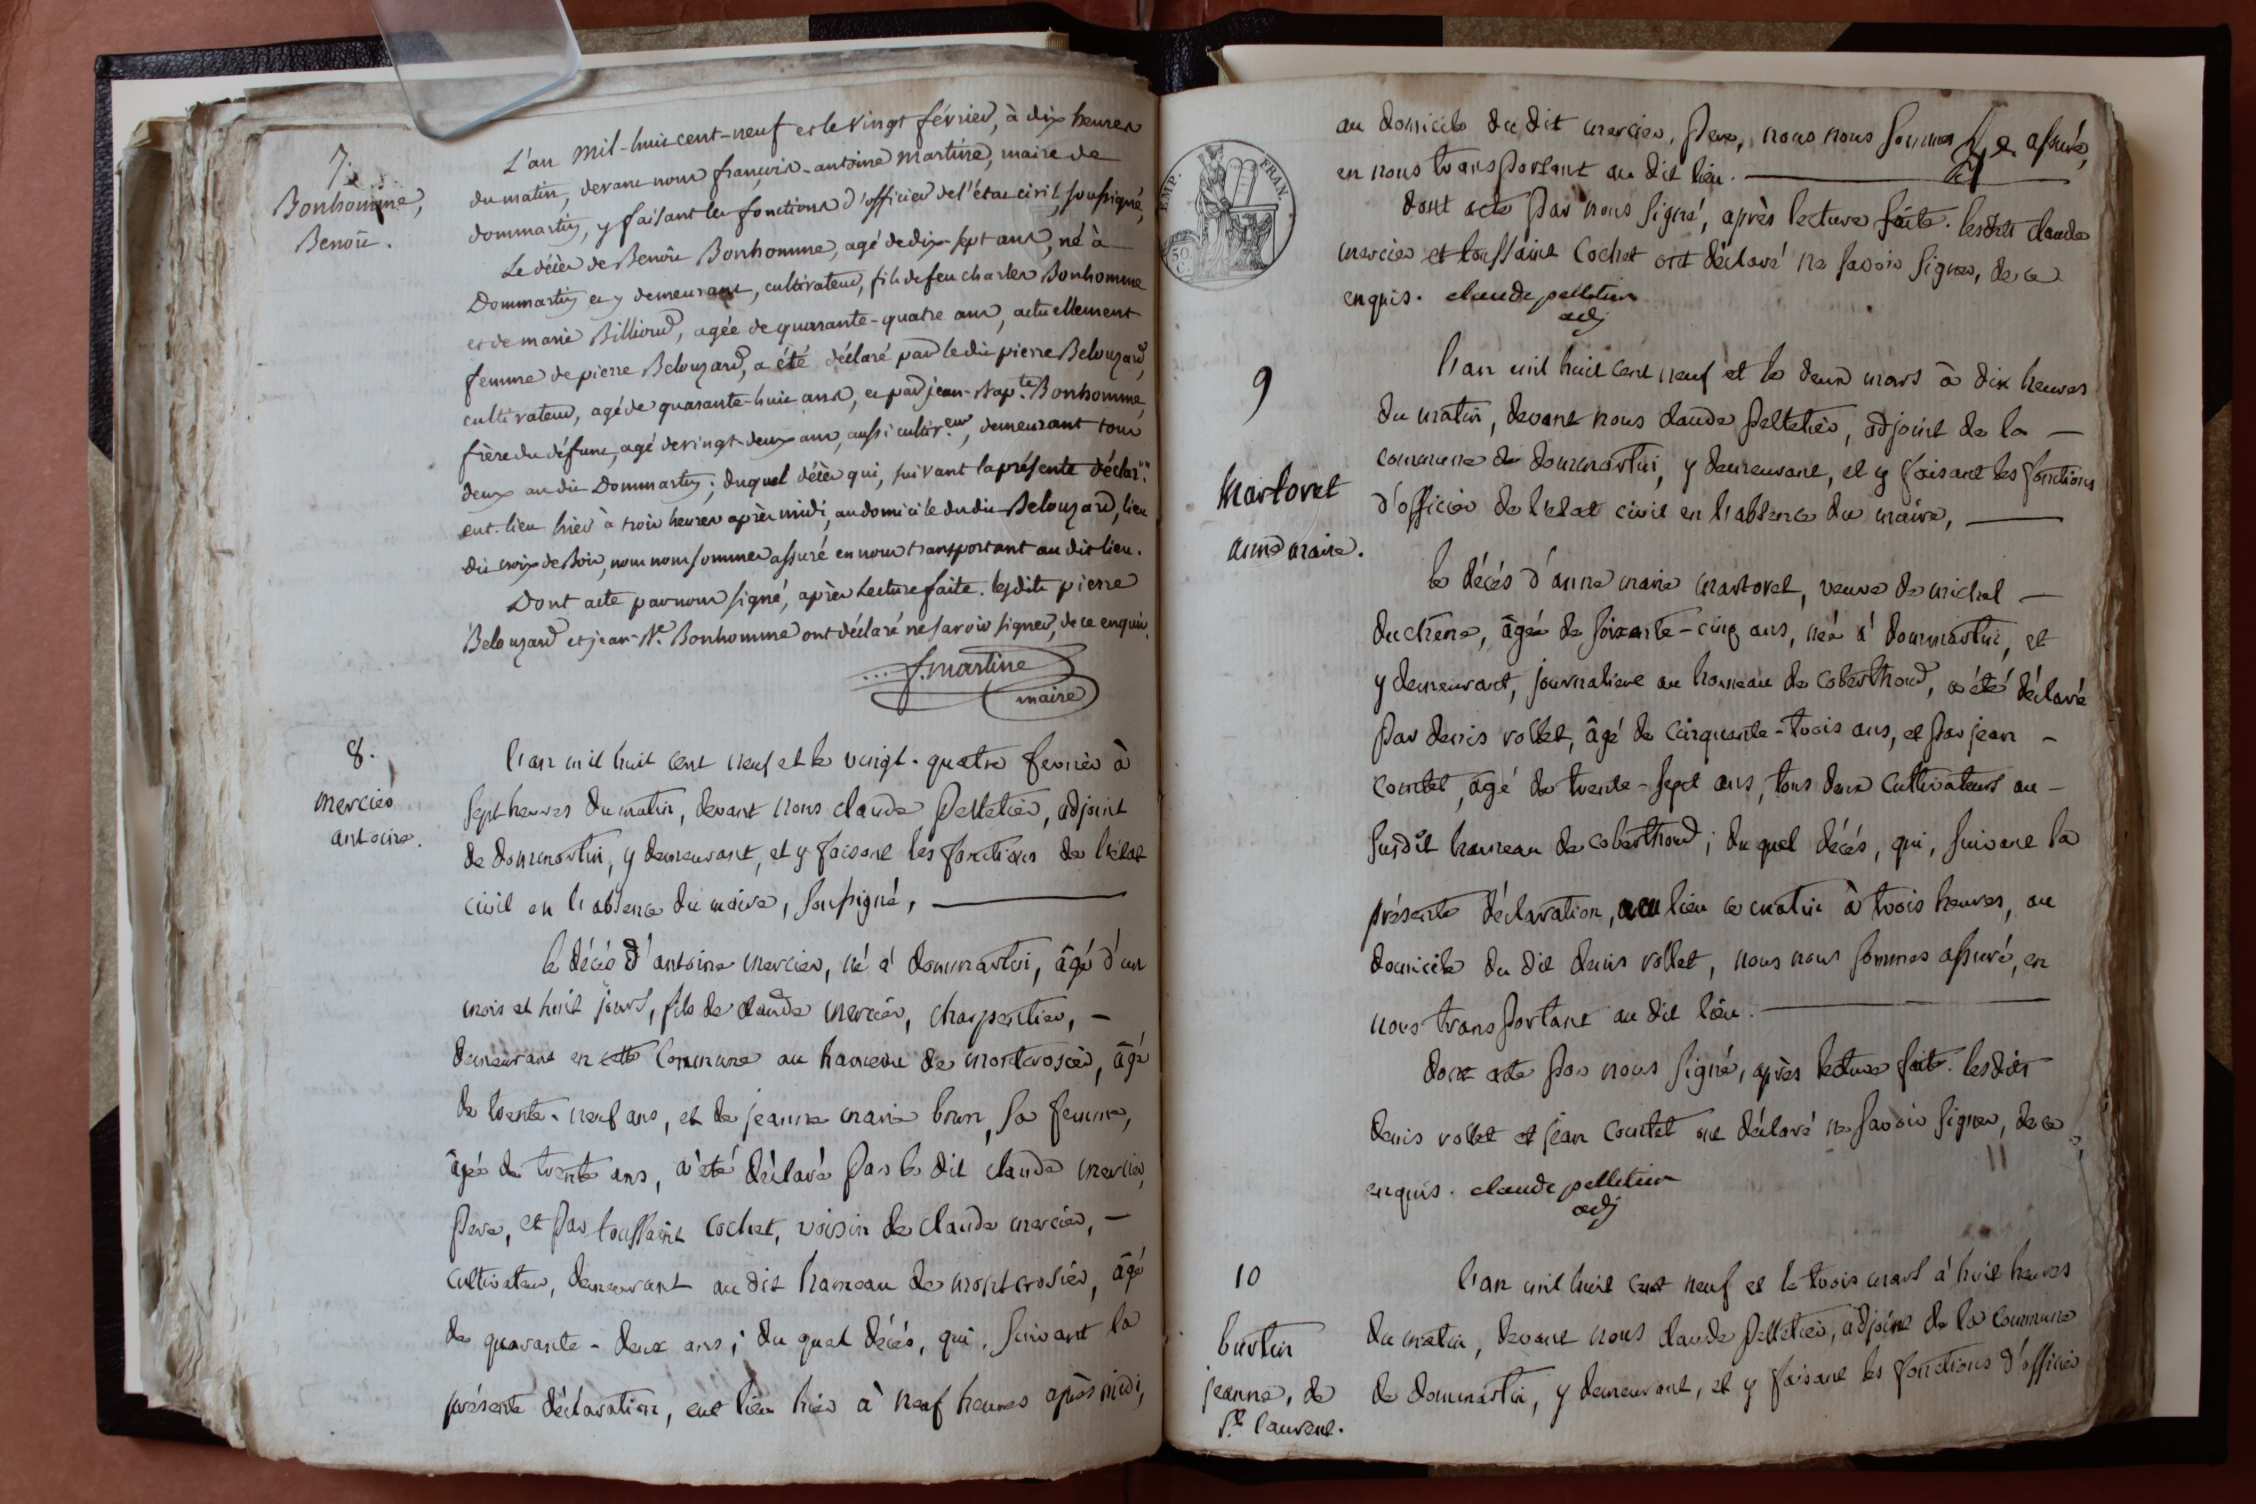 7.
Bonhomme,
Benoît.
L'an mil-huit cent-neuf et le vingt février, à dix heures
du matin, devant nous françois-antoine martine, maire de
dommartin, y faisant les fonctions d'officier de l'état civil, soussigné,
Le décès de Benoît Bonhomme, agé de dix-sept ans, né à
Dommartin et y demeurant, cultivateur, fils de feu charles Bonhomme
et de marie Billioud, agée de quarante-quatre ans, actuellement
femme de pierre Belouzard, a été déclaré par le dit pierre Belouzard,
cultivateur, agé de quarante-huit ans, et par jean-Bap.te Bonhomme,
frère du défunt, agé de vingt-deux ans, aussi cultiv.eur, demeurant tous
deux au dit Dommartin; duquel décès qui, suivant la présente déclar.on
eut-lieu hier à trois heures après midi, au domicile du dit Belouzard, lieu
dit croix de Bois, nous nous sommes assuré en nous transportant au dit lieu.
Dont acte par nous signé, après Lecture faite. lesdits pierre
Belouzard et jean-B.te Bonhomme ont déclaré ne savoir signer, de ce enquis.
f. martine
maire
8.
mercier
antoine.
l'an mil huit cent neuf et le vingt-quatre fevrier à
sept heures du matin, devant nous claude pelletier, adjoint
de dommartin, y demeurant, et y faisant les fonctions de l'etat
civil en l'absence du maire, soussigné,
le décés d'antoine mercier, né à dommartin, âgé d'un
mois et huit jours, fils de claude mercier, charpentier, -
demeurant en cette commune au hameau de montcrosier, âgé
de trente-neuf ans, et de jeanne marie brun, sa femme,
âgée de trente ans, a été déclaré par le dit claude mercier,
pere, et par toussaint cochet, voisin de claude mercier, -
cultivateur, demeurant au dit hameau de montcrosier, âgé
de quarante-deux ans; du quel décés, qui, suivant la
présente déclaration, eut lieu hier à neuf heures après midi,
EMP. FRAN.
50 C
au domicile du dit mercier, pere, nous nous sommes assuré,
en nous transportant au dit lieu.
dont acte par nous signé, après lecture faite. lesdits claude
mercier et toussaint cochet ont déclaré ne savoir signer, de ce
enquis. claude pelletier
adj
9
Martoret
anne marie.
l'an mil huit cent neuf et le deux mars à dix heures
du matin, devant nous claude pelletier, adjoint de la -
commune de dommartin, y demeurant, et y faisant les fonctions
d'officier de l'etat civil en l'absence du maire,
le décés d'anne marie martoret, veuve de michel -
duchene, âgée de soixante-cinq ans, née à dommartin, et
y demeurant, journaliere au hameau de coberthoud, a été déclaré
par denis vollet, âgé de cinquante-trois ans, et par jean -
comtet, âgé de trente-sept ans, tous deux cultivateurs au -
susdit hameau de coberthoud; du quel décés, qui, suivant la
présente déclaration, a eu lieu ce matin à trois heures, au
domicile du dit denis vollet, nous nous sommes assuré, en
nous transportant au dit lieu.
dont acte par nous signé, après lecture faite. lesdits
denis vollet et jean comtet ont déclaré ne savoir signer, de ce
enquis. claude pelletier
adj
10
burtin
jeanne, de
s.t laurent.
l'an mil huit cent neuf et le trois mars à huit heures
du matin, devant nous claude pelletier, adjoint de la commune
de dommartin, y demeurant, et y faisant les fonctions d'officier